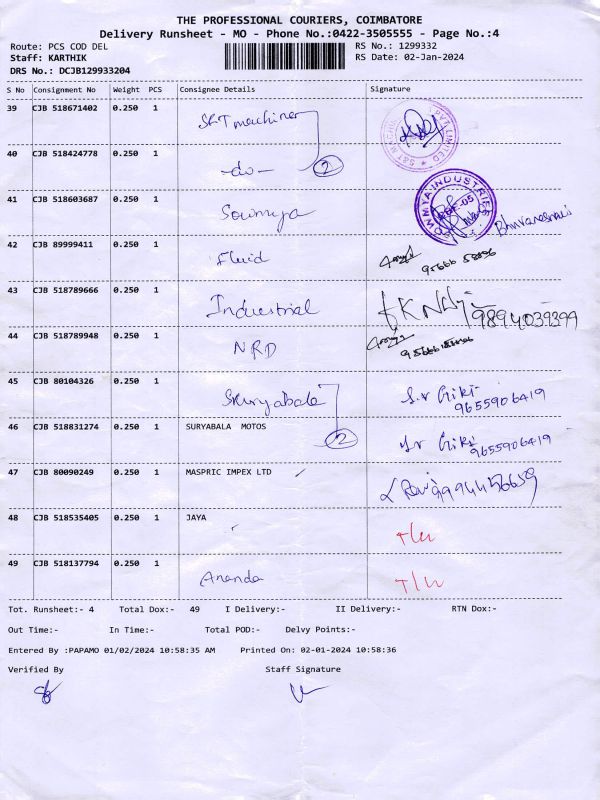 THE PROFESSIONAL COURIERS, COIMBATORE
Delivery Runsheet - MO - Phone No.:0422-3505555 - Page No.:4
Route: PCS COD DEL RS No.: 1299332
Staff: KARTHIK RS Date: 02-Jan-2024
DRS No.: DCJB129933204
S No Consignment No Weight PCS Consignee Details Signature
39 CJB 518671402 0.250 1 S&T machiner
40 CJB 518424778 0.250 1 -do- 2
41 CJB 518603687 0.250 1 Sowmya SOWMYA INDUSTRIES Bhuvaneswari
42 CJB 89999411 0.250 1 Fluid
43 CJB 518789666 0.250 1 Industrial 9894039399
44 CJB 518789948 0.250 1 NRD
45 CJB 80104326 0.250 1 9655906419
46 CJB 518831274 0.250 1 SURYABALA MOTOS 2 9655906419
47 CJB 80090249 0.250 1 MASPRIC IMPEX LTD
48 CJB 518535405 0.250 1 JAYA
49 CJB 518137794 0.250 1 Ananda
Tot. Runsheet:- 4 Total Dox:- 49 I Delivery:- II Delivery:- RTN Dox:-
Out Time:- In Time:- Total POD:- Delvy Points:-
Entered By :PAPAMO 01/02/2024 10:58:35 AM Printed On: 02-01-2024 10:58:36
Verified By Staff Signature